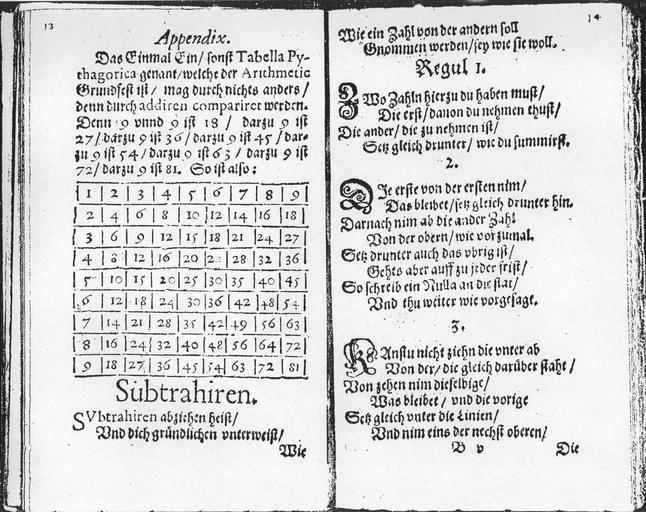 13
Appendix.
Das Einmal Ein/ sonst Tabella Py-
thagorica genant/ welche der Arithmetic
Grundfest ist / mag durch nichts anders /
denn durch addiren compariret werden.
Denn 9 vnnd 9 ist 18 / darzu 9 ist
27/ darzu 9 ist 36/ darzu 9 ist 45 / dar-
zu 9 ist 54/ darzu 9 ist 63 / darzu 9 ist
72/ darzu 9 ist 81. So ist also:
1 | 2 | 3 | 4 | 5 | 6 | 7 | 8 | 9
2 | 4 | 6 | 8 | 10 | 12 | 14 | 16 | 18
3 | 6 | 9 | 12 | 15 | 18 | 21 | 24 | 27
4 | 8 | 12 | 16 | 20 | 24 | 28 | 32 | 36
5 | 10 | 15 | 20 | 25 | 30 | 35 | 40 | 45
6 | 12 | 18 | 24 | 30 | 36 | 42 | 48 | 54
7 | 14 | 21 | 28 | 35 | 42 | 49 | 56 | 63
8 | 16 | 24 | 32 | 40 | 48 | 56 | 64 | 72
9 | 18 | 27 | 36 | 45 | 54 | 63 | 72 | 81
Subtrahiren.
SVbtrahiren abziehen heist/
Vnd dich gründlichen vnterweist/
Wie
14
Wie ein Zahl von der andern soll
Gnommen werden/ sey wie sie woll.
Regul 1.
ZWo Zahln hierzu du haben must/
Die erst/ dauon du nehmen thust/
Die ander/ die zu nehmen ist/
Setz gleich drunter/ wie du summirst.
2.
DJe erste von der ersten nim/
Das bleibet/ setz gleich drunter hin.
Darnach nim ab die ander Zahl
Von der obern/ wie vorzumal.
Setz drunter auch das vbrig ist/
Gehts aber auff zu jeder frist/
So schreib ein Nulla an die stat/
Vnd thu weiter wie vorgesagt.
3.
KAnstu nicht ziehn die vnter ab
Von der/ die gleich darüber staht/
Von zehen nim dieselbige/
Was bleibet/ vnd die vorige
Setz gleich vnter die Linien/
Vnd nim eins der nechst oberen/
B v
Die